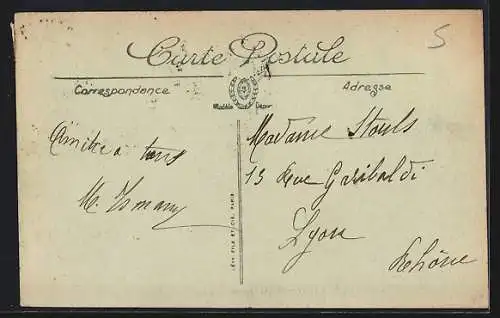 Carte Postale
5
Correspondance
Adresse
Modèle Déposé
Amitié a tous
Madame Stouls
13 Rue Garibaldi
Lyon
Rhône
LÉVY FILS ET CIE, PARIS